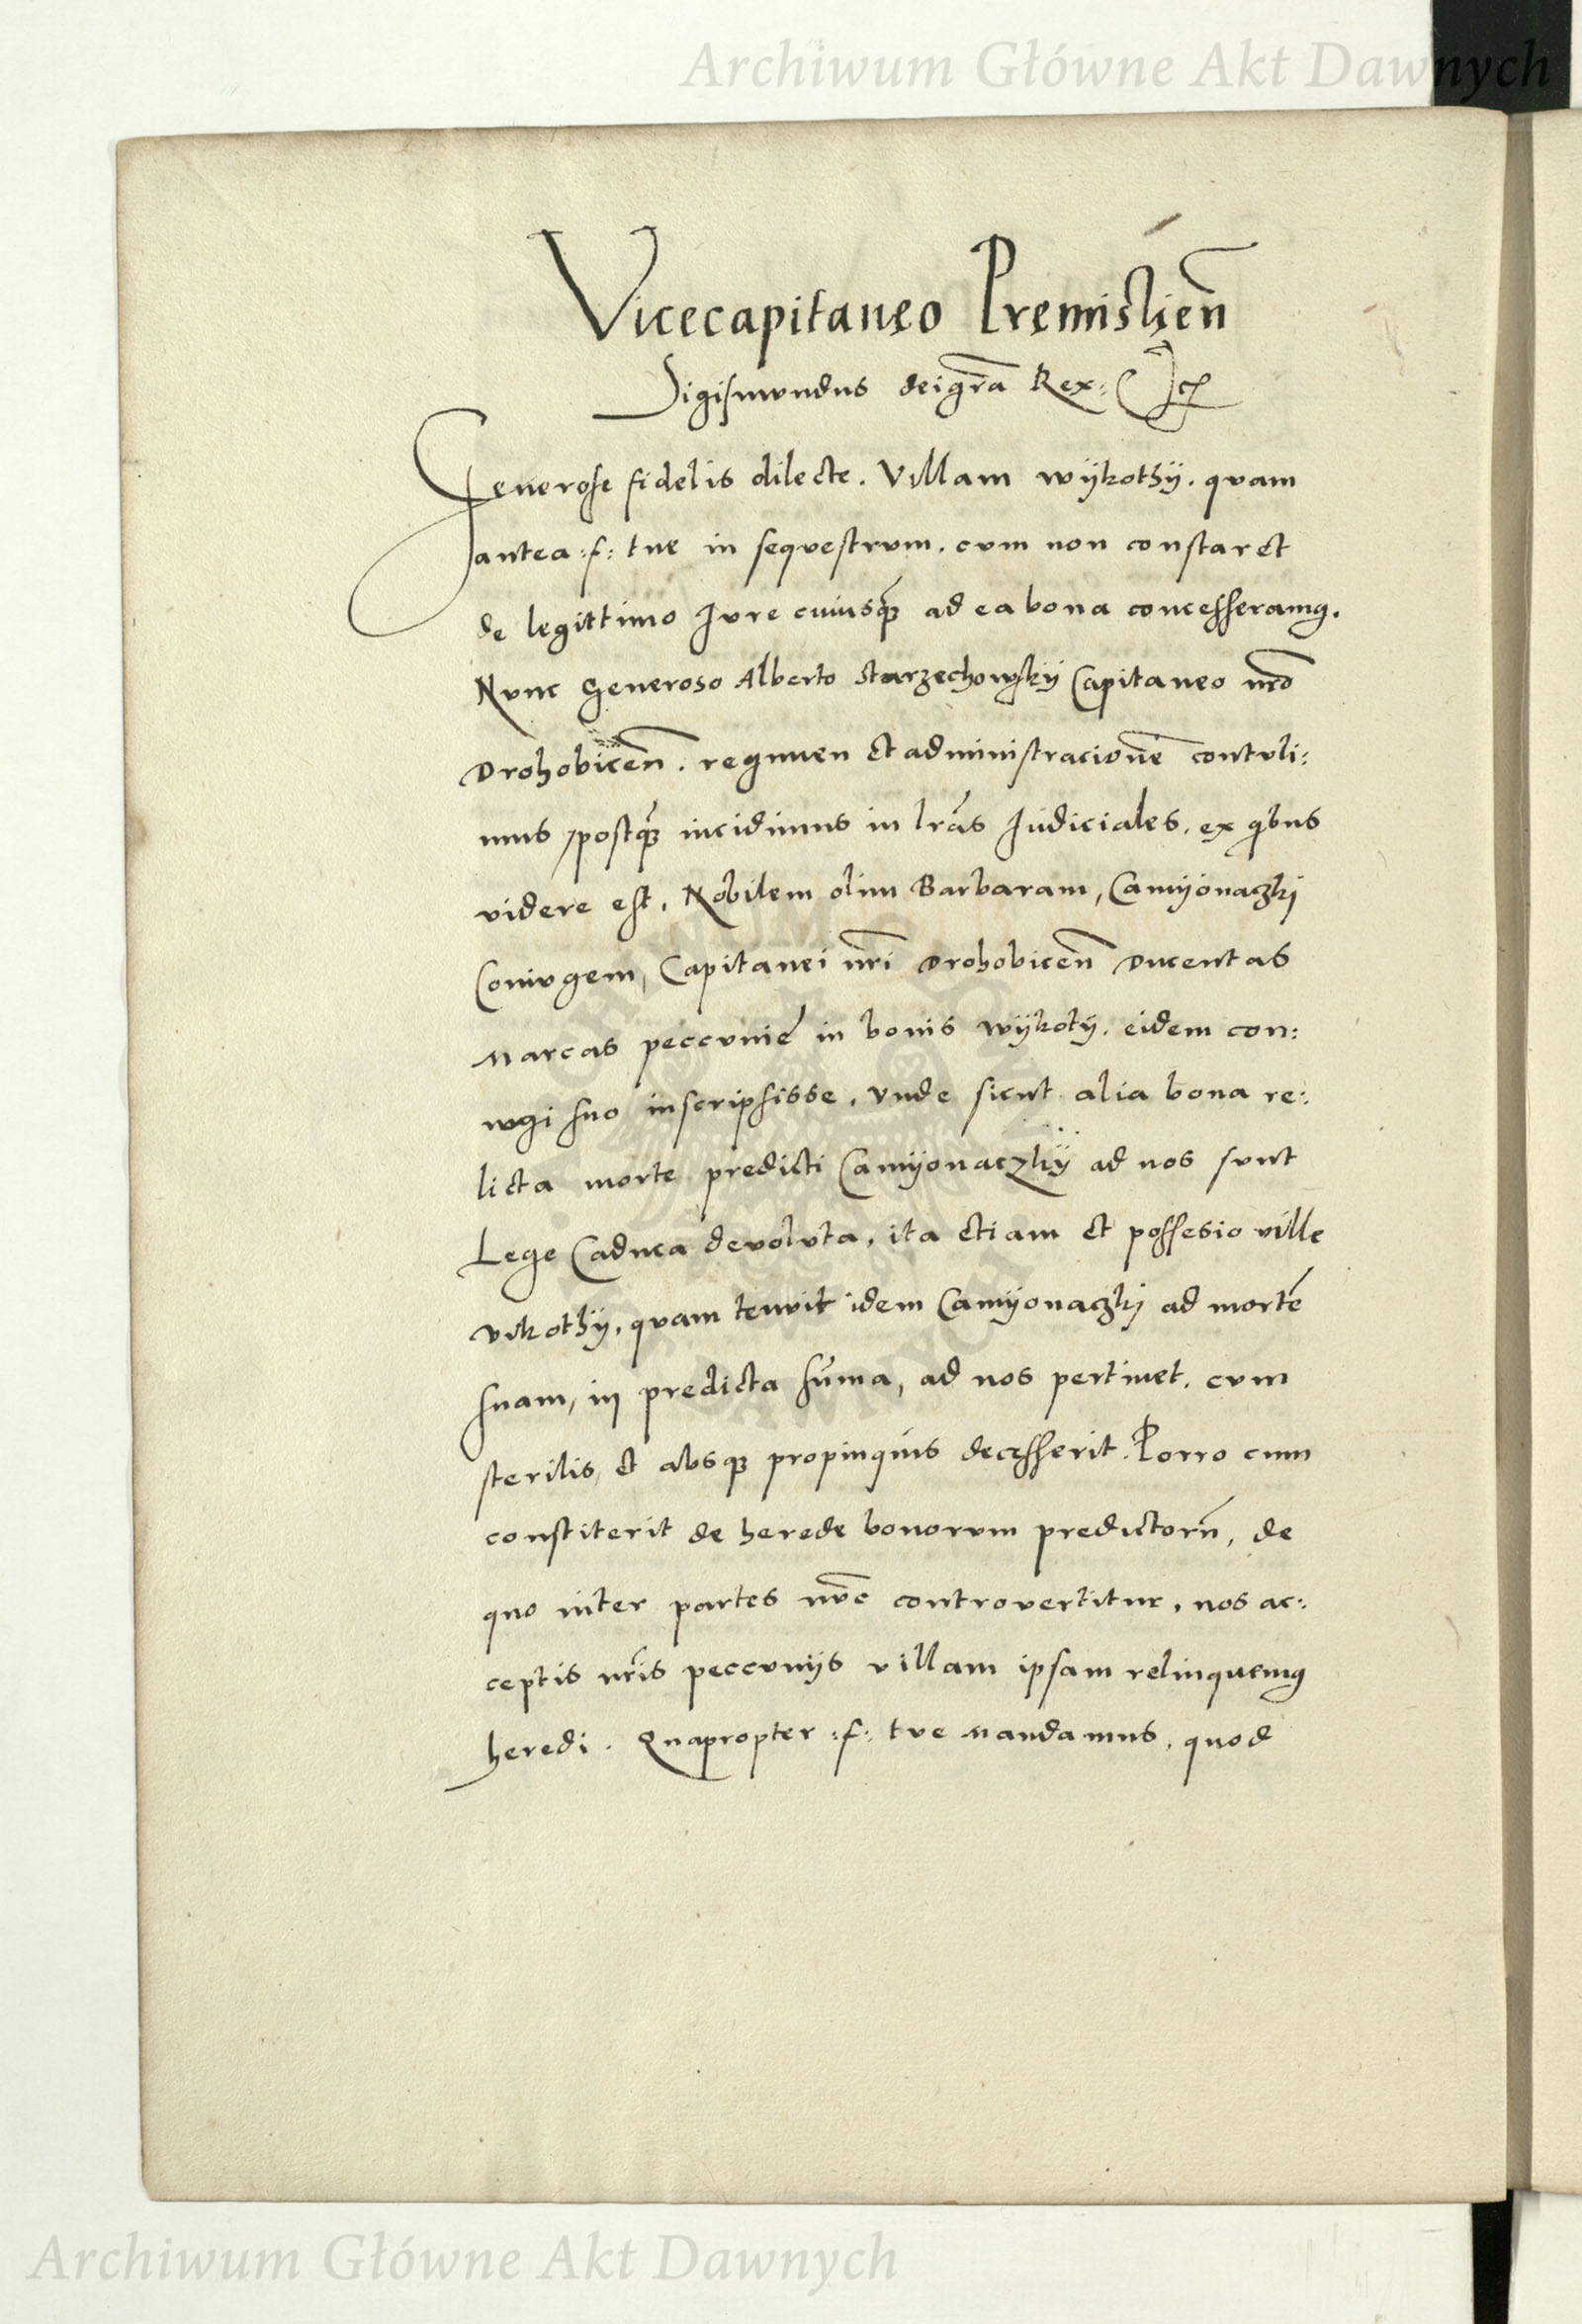 Archiwum Główne Akt Dawnych
Vicecapitaneo Premislien̄
Sigismundus dei gr̄a Rex:
Generose fidelis dilecte. Villam wÿkothÿ. quam
antea :f: tue in sequestrum. cum non constaret
de legittimo Jure cuiusq̄ȝ ad ea bona concesseramꝯ.
Nunc Generoso Alberto Starzechowskÿ Capitaneo nr̄o
Drohobicen̄. regimen et administracionē contuli:
mus, postq̄ȝ incidimus in lr̄as Judiciales. ex qͥbus
videre est, Nobilem olim Barbaram, Camÿonaczkj
Coniugem, Capitanei nr̄i Drohobicen̄ Ducentas
Marcas peccunie in bonis wÿkotÿ. eidem con:
iugi suo inscripsisse. Vnde sicut alia bona re:
licta morte predicti Camÿonaczkÿ ad nos sunt
Lege Caduca devoluta, ita etiam et possesio ville
vikothÿ, quam tenuit idem Camÿonaczkj ad mortē
suam, in predicta sūma, ad nos pertinet. cum
sterilis, et absqȝ propinquis decesserit. Porro cum
constiterit de herede bonorum predictorū, de
quo inter partes nūc controvertitur, nos ac:
ceptis nr̄is peccunÿs villam ipsam relinquemꝯ
heredi. Quapropter :f: tue Mandamus, quod
Archiwum Główne Akt Dawnych